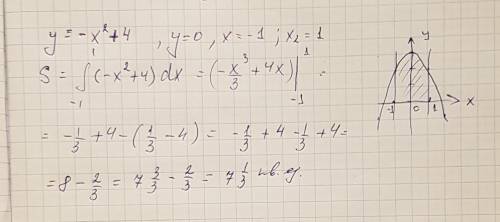 y = -x² + 4 , y = 0 , x = -1 ; x₂ = 1
S = ∫₋₁¹ (-x² + 4) dx = (-x³/3 + 4x) |₋₁¹ =
= -1/3 + 4 - (1/3 - 4) = -1/3 + 4 - 1/3 + 4 =
= 8 - 2/3 = 7 3/3 - 2/3 = 7 1/3 кв. ед.
y
-1 0 1 x